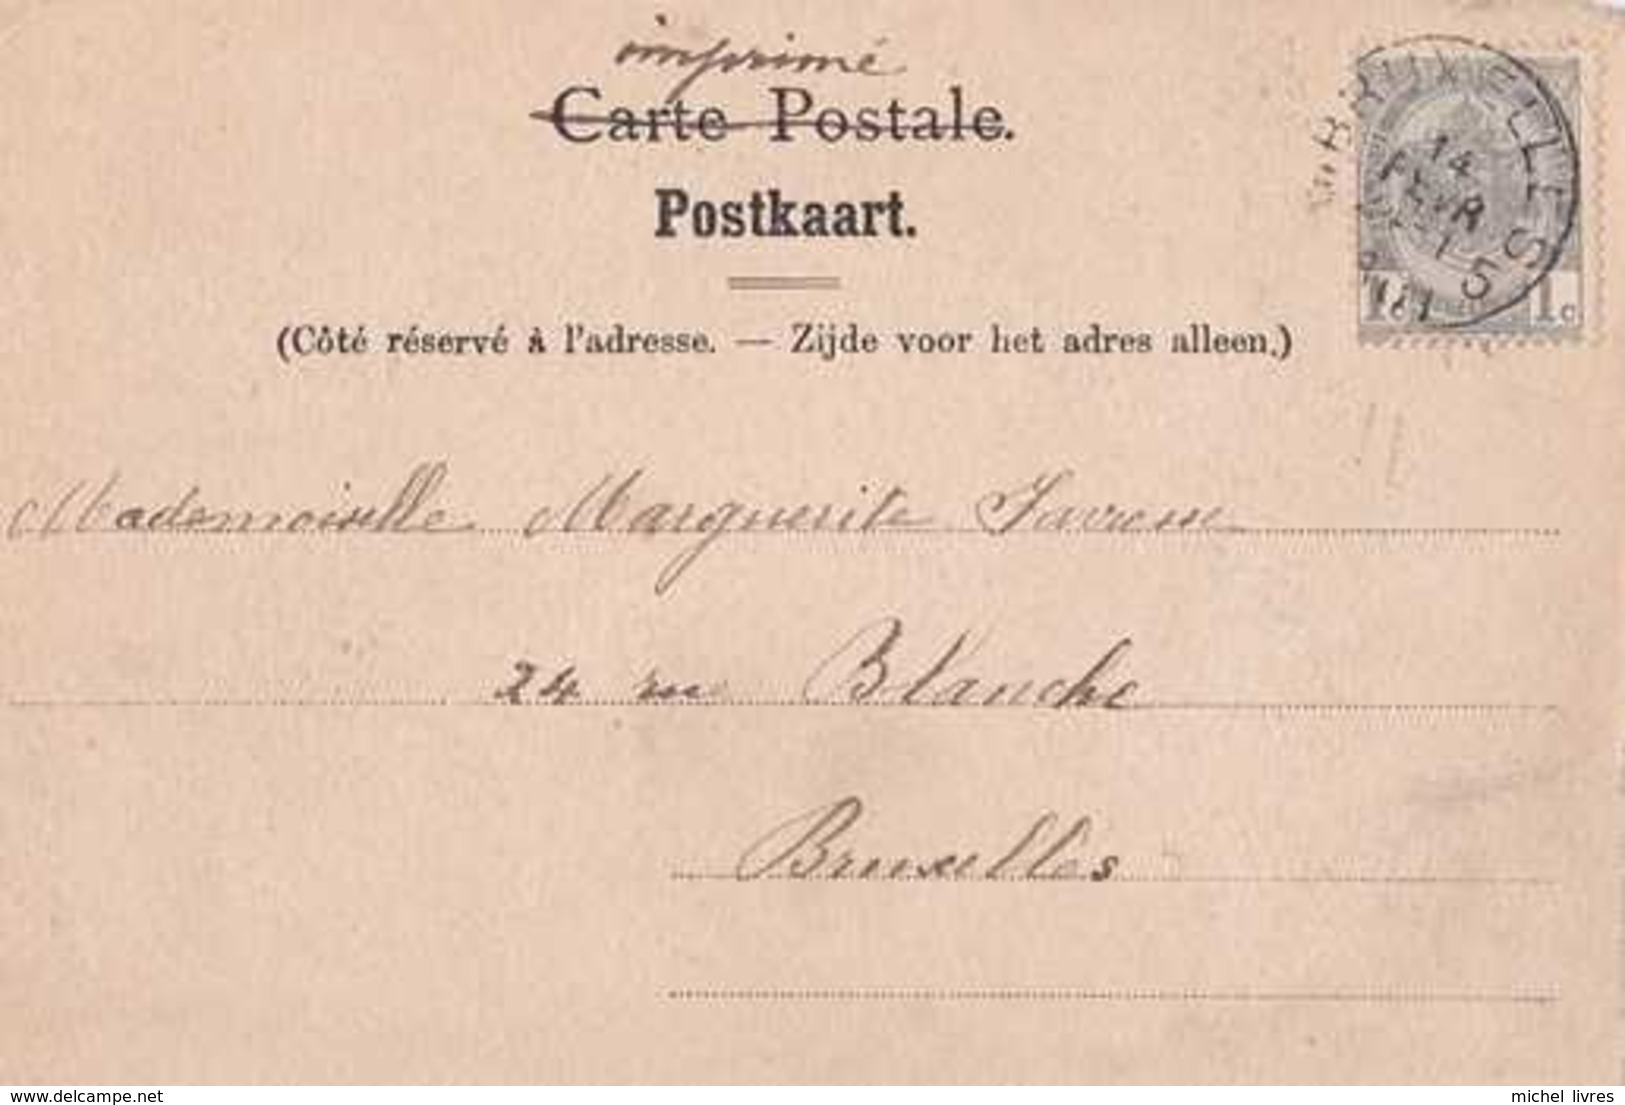 imprimé
Carte Postale.
Postkaart.
BRUXELLES 5
14
FEVR
1 c
(Côté réservé à l'adresse. — Zijde voor het adres alleen.)
Mademoiselle Marguerite
24 rue Blanche
Bruxelles
www.delcampe.net
michel livres